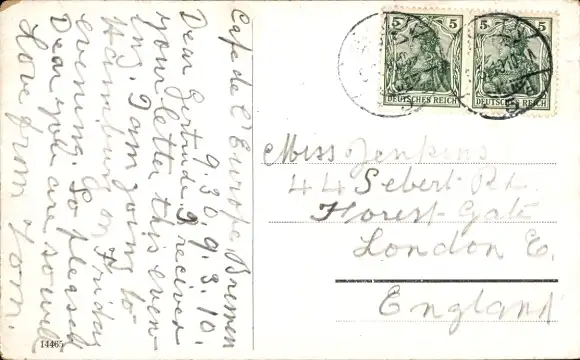 Cafe de l'Europe, Bremen
9.30. 9.3.10.
Dear Gertrude I receiver
your letter this even-
ing. I am going to
Hamburg on Friday
evening. So pleased
Dear you are so well
Love from Tom.
14465
5 5
DEUTSCHES REICH
5 5
DEUTSCHES REICH
Miss Jenkins
44 Sebert Rd.
Forest-Gate
London E.
England